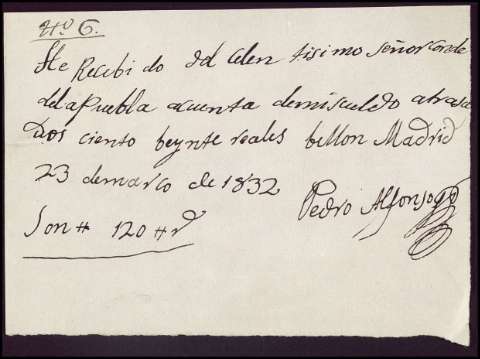 Nº 6.
He Recebi do del Celen tisimo señor conde
de la Puebla acuenta demisueldo atrasa
Dos ciento beynte reales bellon Madrid
23 demarco de 1832
Pedro Alfonso
Son # 120 # rˢ